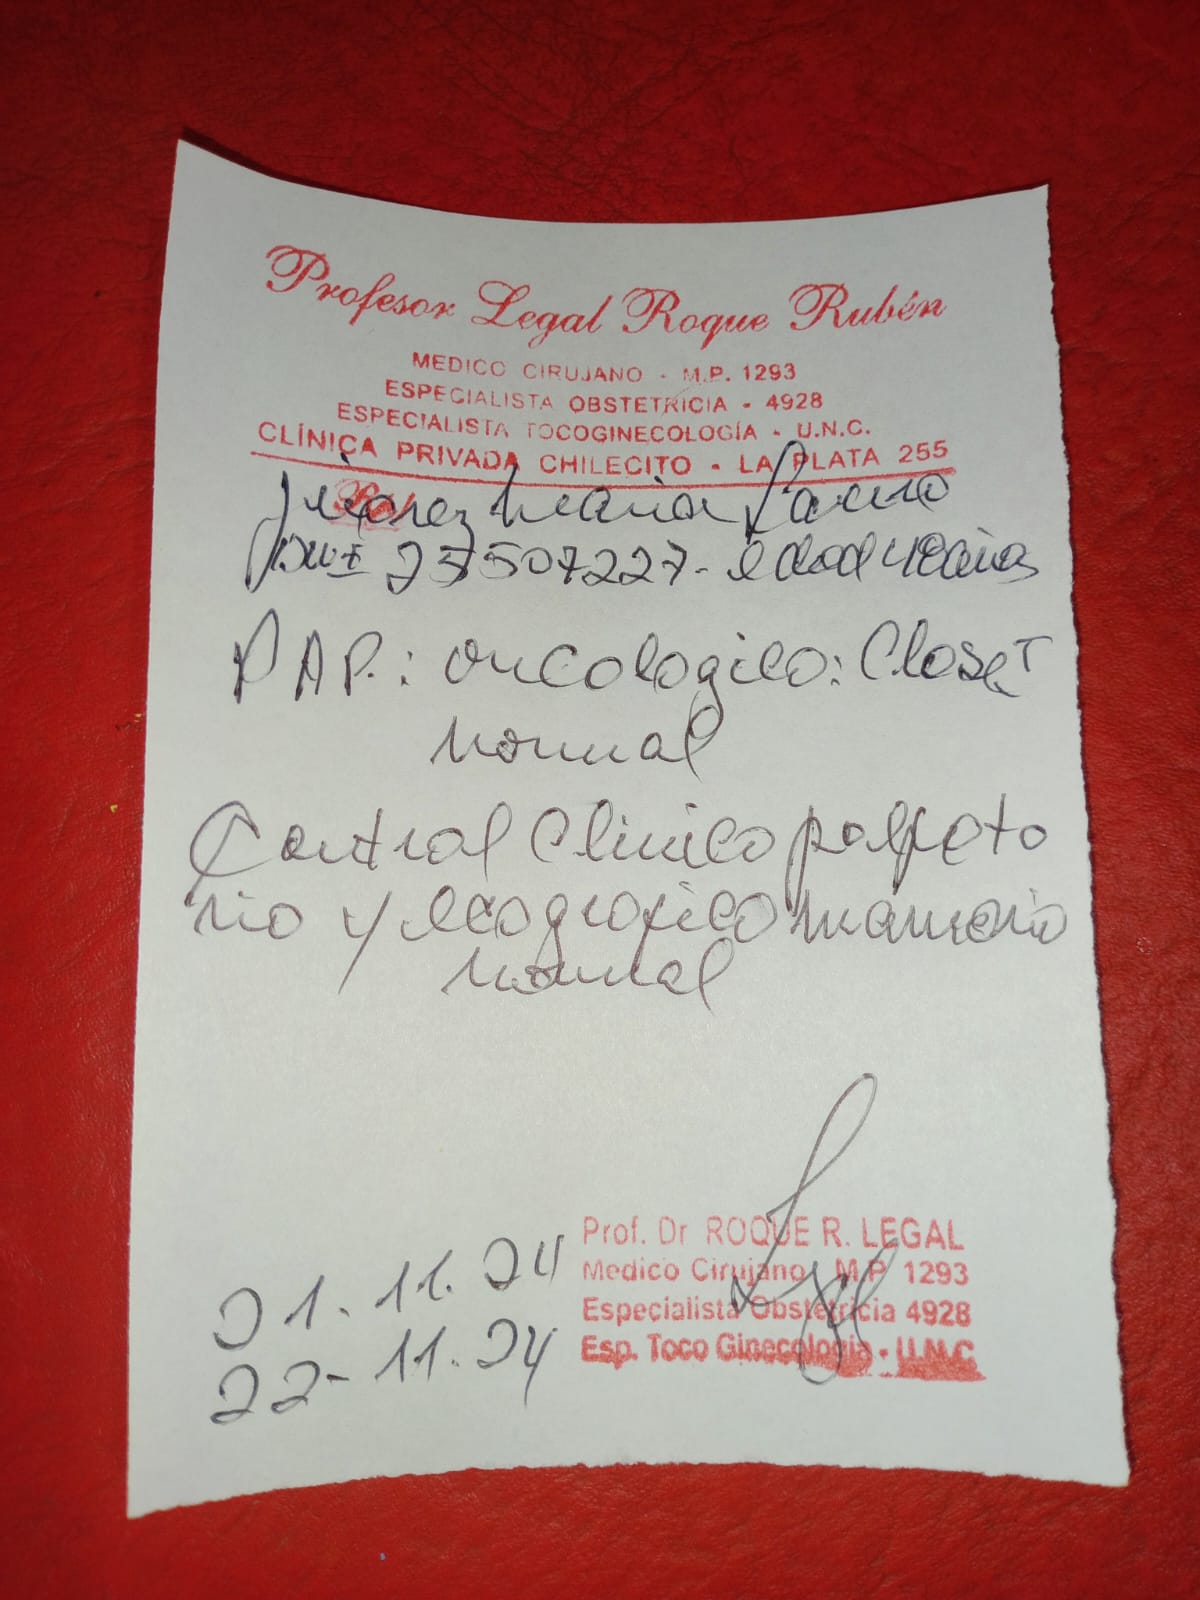 Profesor Legal Roque Rubén
MEDICO CIRUJANO - M.P. 1293
ESPECIALISTA OBSTETRICIA - 4928
ESPECIALISTA TOCOGINECOLOGÍA - U.N.C.
CLÍNICA PRIVADA CHILECITO - LA PLATA 255
Maria
25507227- edad 48 años
PAP.: oncologico: Clase I
normal
Control Clinico palpato
rio y ecografico mamario
normal
21-11.24
22-11.24
Prof. Dr ROQUE R. LEGAL
Medico Cirujano M.P. 1293
Especialista Obstetricia 4928
Esp. Toco Ginecologia - U.N.C